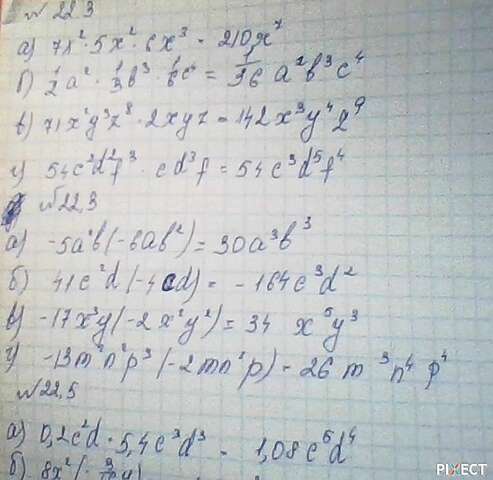 № 22.3
а) 7x² · 5x² · 6x³ = 210x⁷
б) 1/2 a² · 1/3 b³ · 1/6 c⁴ = 1/36 a²b³c⁴
в) 71x²y³z⁸ · 2xyz = 142x³y⁴z⁹
г) 54c²d²f³ · cd³f = 54c³d⁵f⁴
№22,3
а) -5a²b(-6ab²) = 30a³b³
б) 41c²d(-4cd) = -164c³d²
в) -17x³y(-2x²y²) = 34 x⁵y³
г) -13m²n²p³(-2mn²p) = 26m³n⁴p⁴
№22,5
а) 0,2c²d · 5,4c³d³ = 1,08c⁵d⁴
б) 8x²(-3
PIXECT